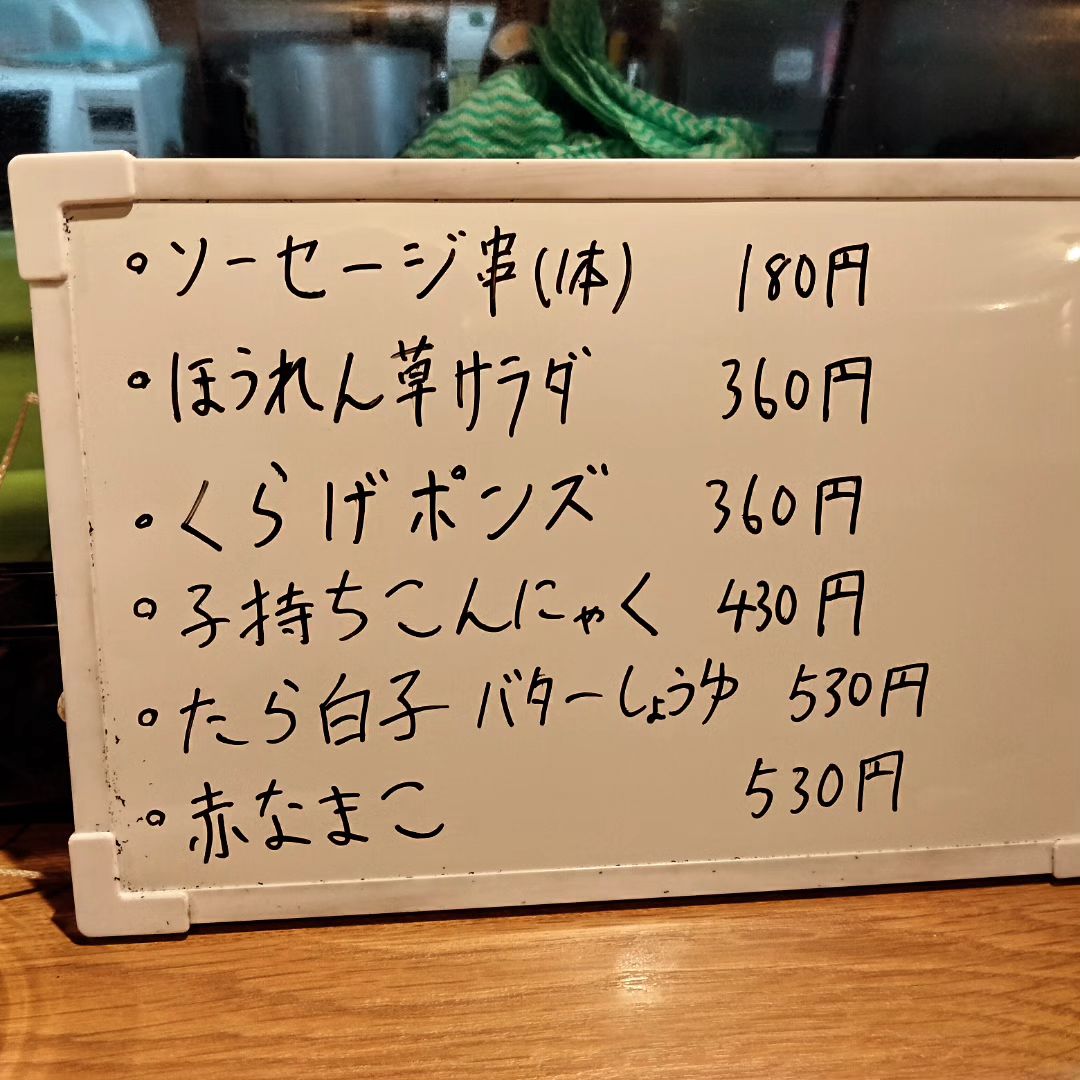 ◦ソーセージ串(1本) 180円
◦ほうれん草サラダ 360円
◦くらげポンズ 360円
◦子持ちこんにゃく 430円
◦たら白子バターしょうゆ 530円
◦赤なまこ 530円